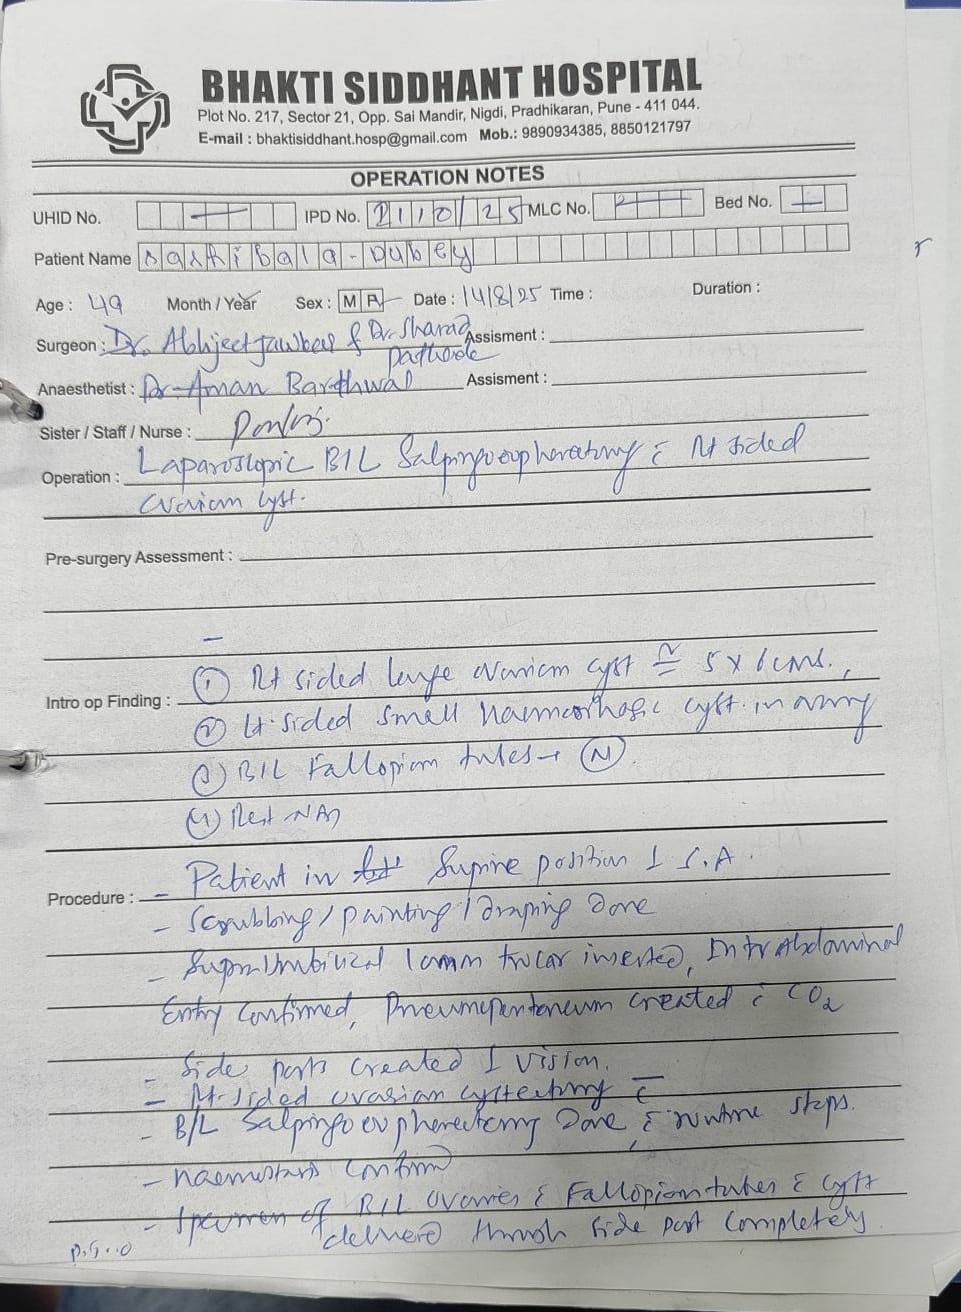 BHAKTI SIDDHANT HOSPITAL
Plot No. 217, Sector 21, Opp. Sai Mandir, Nigdi, Pradhikaran, Pune - 411 044.
E-mail : bhaktisiddhant.hosp@gmail.com Mob.: 9890934385, 8850121797
OPERATION NOTES
UHID No. IPD No. 2110/25 MLC No. Bed No.
Patient Name Bala - Dubey
Age : 49 Month / Year Sex : M F Date : 14/8/25 Time : Duration :
Surgeon : Dr. Abhijeet & Dr. Sharad Assisment :
Anaesthetist : Dr Aman Barthwal Assisment :
Sister / Staff / Nurse :
Operation : Laparoscopic B/L Salpingoophorectomy c Rt sided
ovarian cyst.
Pre-surgery Assessment :
-
Intro op Finding : ① Rt sided large ovarian cyst ≅ 5 x 6 cms.,
② Lt sided small haemorrhagic cyst in ovary
③ B/L Fallopian tubes → Ⓝ
④ Rest NAD
Procedure : - Patient in supine position S.A.
- Scrubbing / painting / draping Done
- Supraumbilical 10mm trocar inserted, Intrabdominal
Entry confirmed, Pneumoperitoneum created c CO2
- Side ports created vision.
- Rt-sided ovarian cystectomy c
- B/L Salpingoophorectomy Done, c routine steps.
- haemostasis confirm
- Specimen of B/L ovaries & Fallopian tubes & cyst
delivered through side port completely
P.T.O